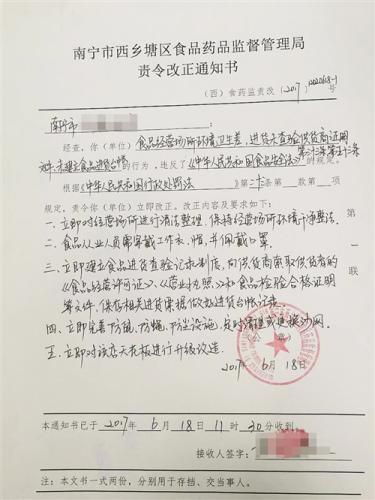 南宁市西乡塘区食品药品监督管理局
责令改正通知书
（西）食药监责改〔2017〕
南宁市
经查，你（单位）食品经营场所环境卫生差，进货未查验供货商证明
文件，未建立食品进货台帐的行为，违反了《中华人民共和国食品安全法》第三十三条、第五十三条的规定。
根据《中华人民共和国行政处罚法》第二十三条第 款第 项
规定，责令你（单位）立即改正。改正内容及要求如下：
一、立即对经营场所进行清洁整理，保持经营场所环境干净整洁。
二、食品从业人员需穿戴工作衣、帽，并佩戴口罩。
三、立即建立食品进货查验记录制度，向供货商索取供货商的
《食品经营许可证》、《营业执照》和食品检验合格证明
等文件，保存相关进货票据做好进货台帐记录。
四、立即完善防鼠、防蝇、防尘设施，及时清理或更换纱网。
五、立即对该店天花板进行升级改造。
（公 章）
2017年6月18日
第一联
本通知书已于2017年6月18日11时30分收到。
接收人签字：
注：本文书一式两份，分别用于存档、交当事人。